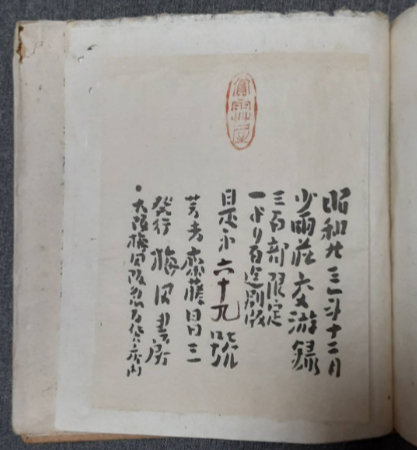 昭和廿三年十二月
少雨荘交游録
三百部限定
一より百迄別版
六十九號
著者齋藤昌三
発行 梅田書房
•大阪梅田阪急百貨店内